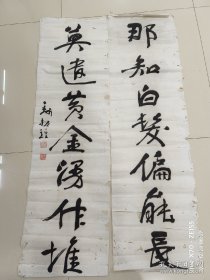 那知白髮偏能長
莫遣黄金漫作堆
ZEISS